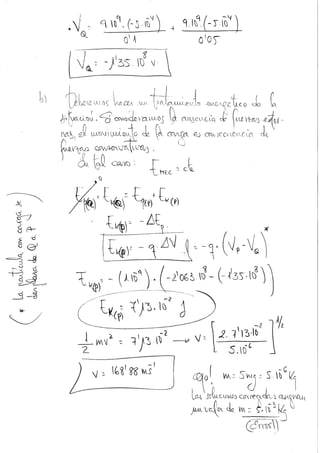 · V_Q = 9.10⁹.(-5.10⁻⁴)/0'1 + 9.10⁹.(-5.10⁻⁴)/0'05
V_Q = -1'35.10⁸ v.
b) Deberemos hacer un tratamiento energético de la
situación. Si consideramos la ausencia de fuerzas exter-
nas, el movimiento de la carga es consecuencia de
fuerzas conservativas.
En tal caso: E_MEC = cte
E_K(Q) + E_P(Q) = E_P(P) + E_K(P)
E_K(P) = -ΔE_P
E_K(P) = -q.ΔV = -q.(V_P - V_Q)*
E_K(P) = -(1.10⁻⁹).(-2'063.10⁸ - (-1'35.10⁸))
E_K(P) = 7'13.10⁻² J
1/2 mv² = 7'13.10⁻² → v = [2.7'13.10⁻²/5.10⁻⁶]^1/2
v = 168'88 ms⁻¹
¡ojo! m = 5mg = 5.10⁻⁶ Kg
Las soluciones corregidas asignan
un valor de m = 5.10⁻³ Kg
(¡Error!)
(* La partícula con carga se
desplaza de Q a P)